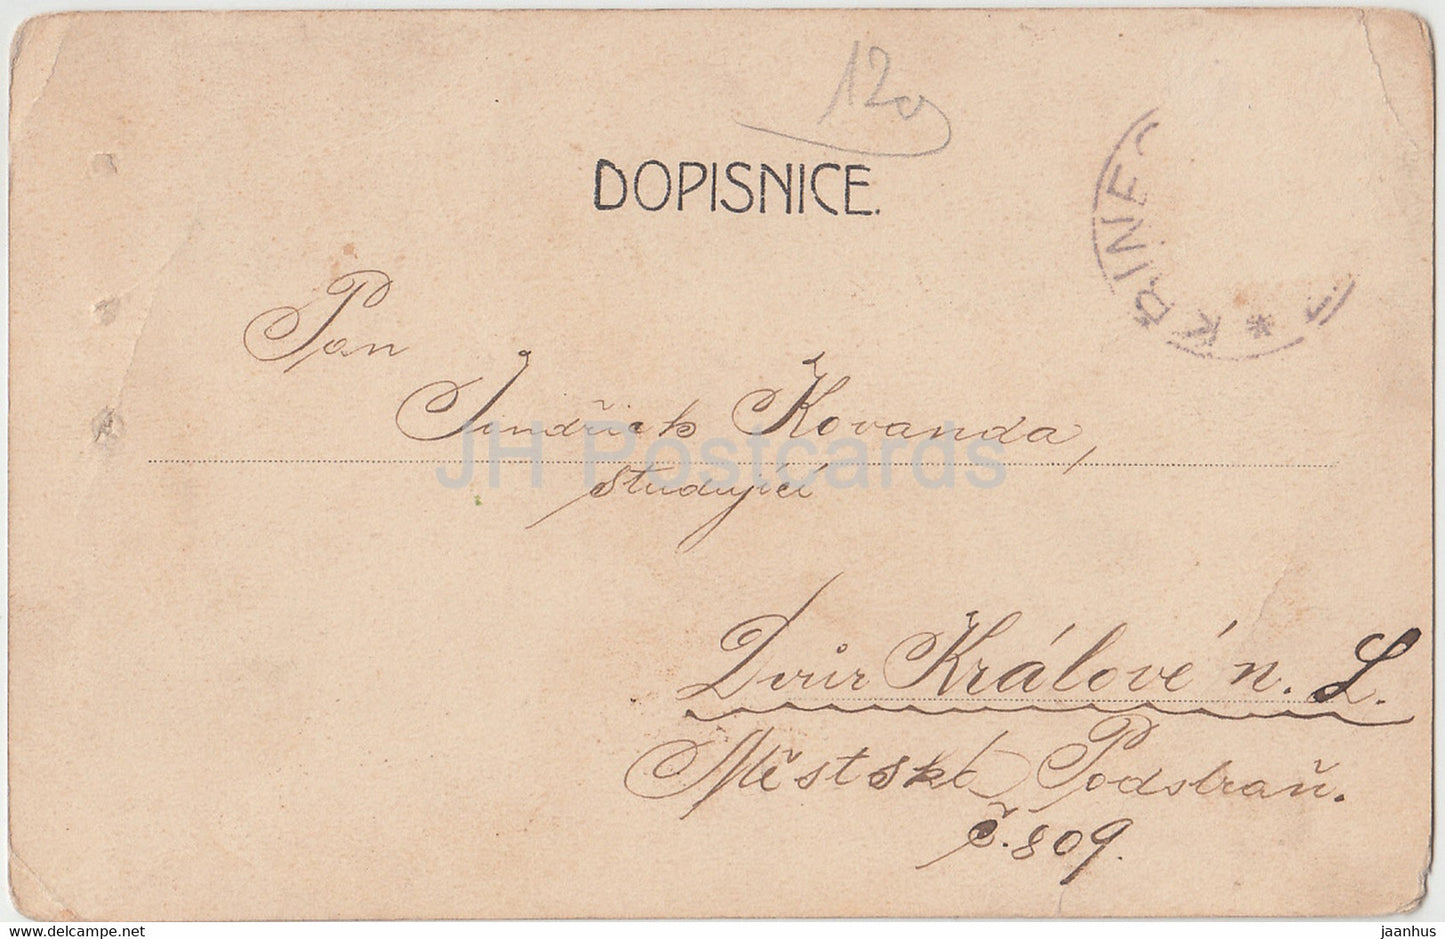 120
DOPISNICE.
KŘINEC
Pan
Jindřich Kovanda,
studující
Dvůr Králové n. L.
Městské Podstraň.
č. 809.
JH Postcards
delcampe.net
jaanhus